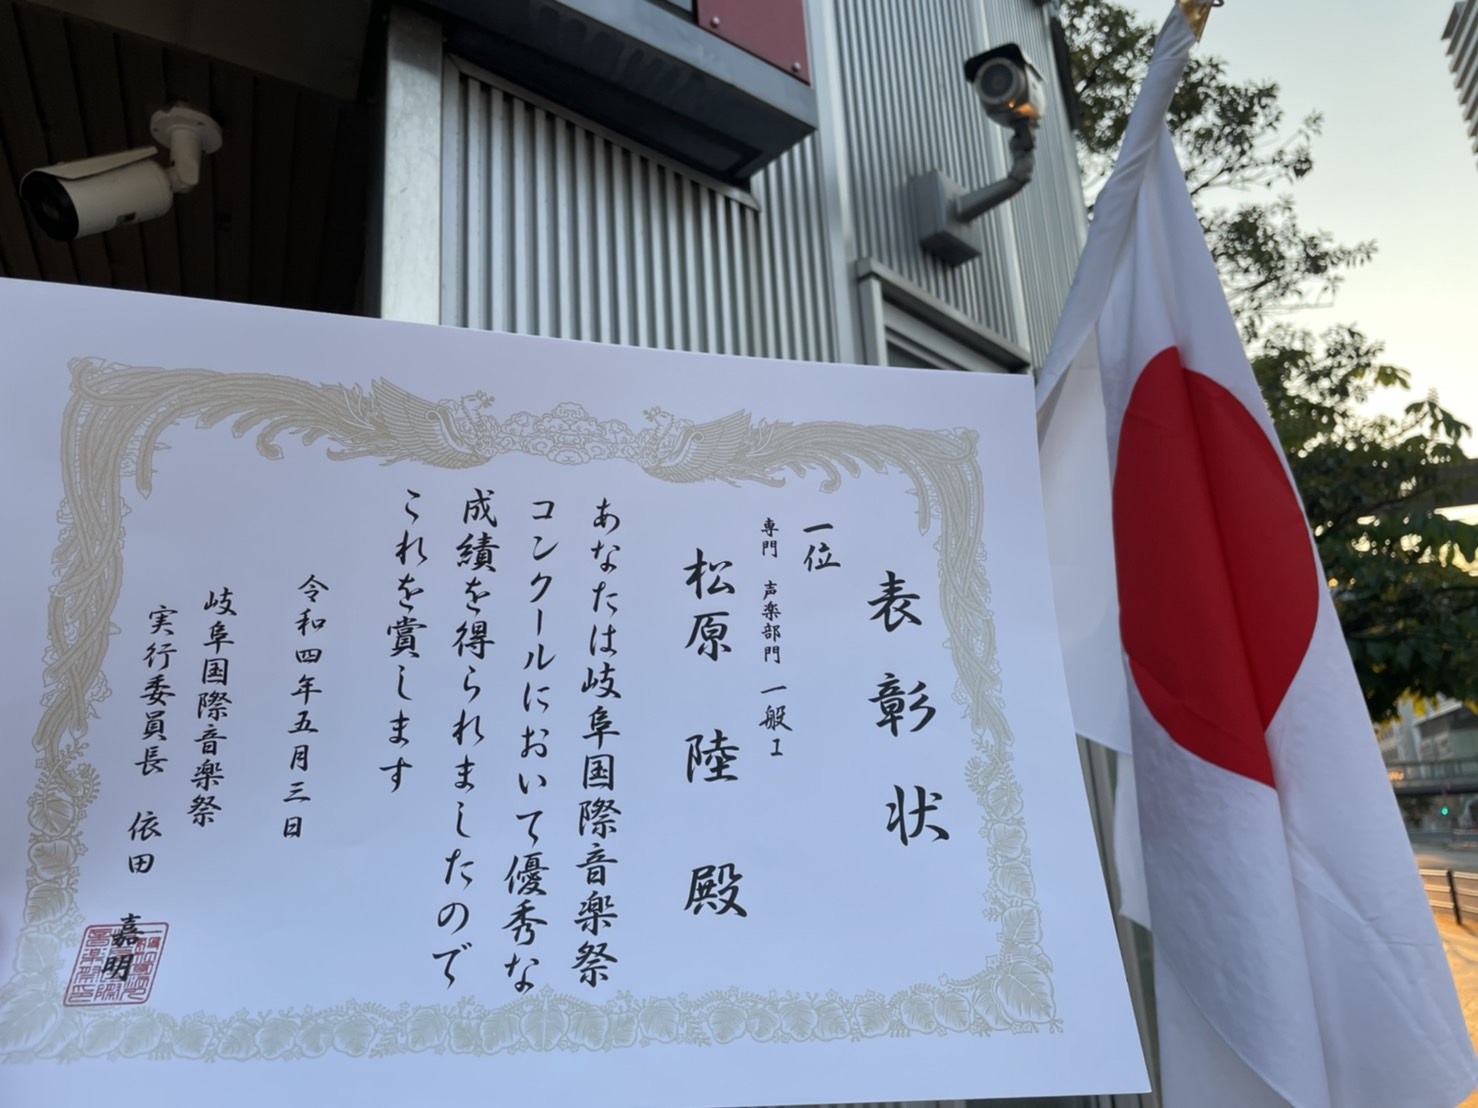 表彰状
一位
専門 声楽部門 一般I
松原 陸 殿
あなたは岐阜国際音楽祭
コンクールにおいて優秀な
成績を得られましたので
これを賞します
令和四年五月三日
岐阜国際音楽祭
実行委員長 依田 嘉明